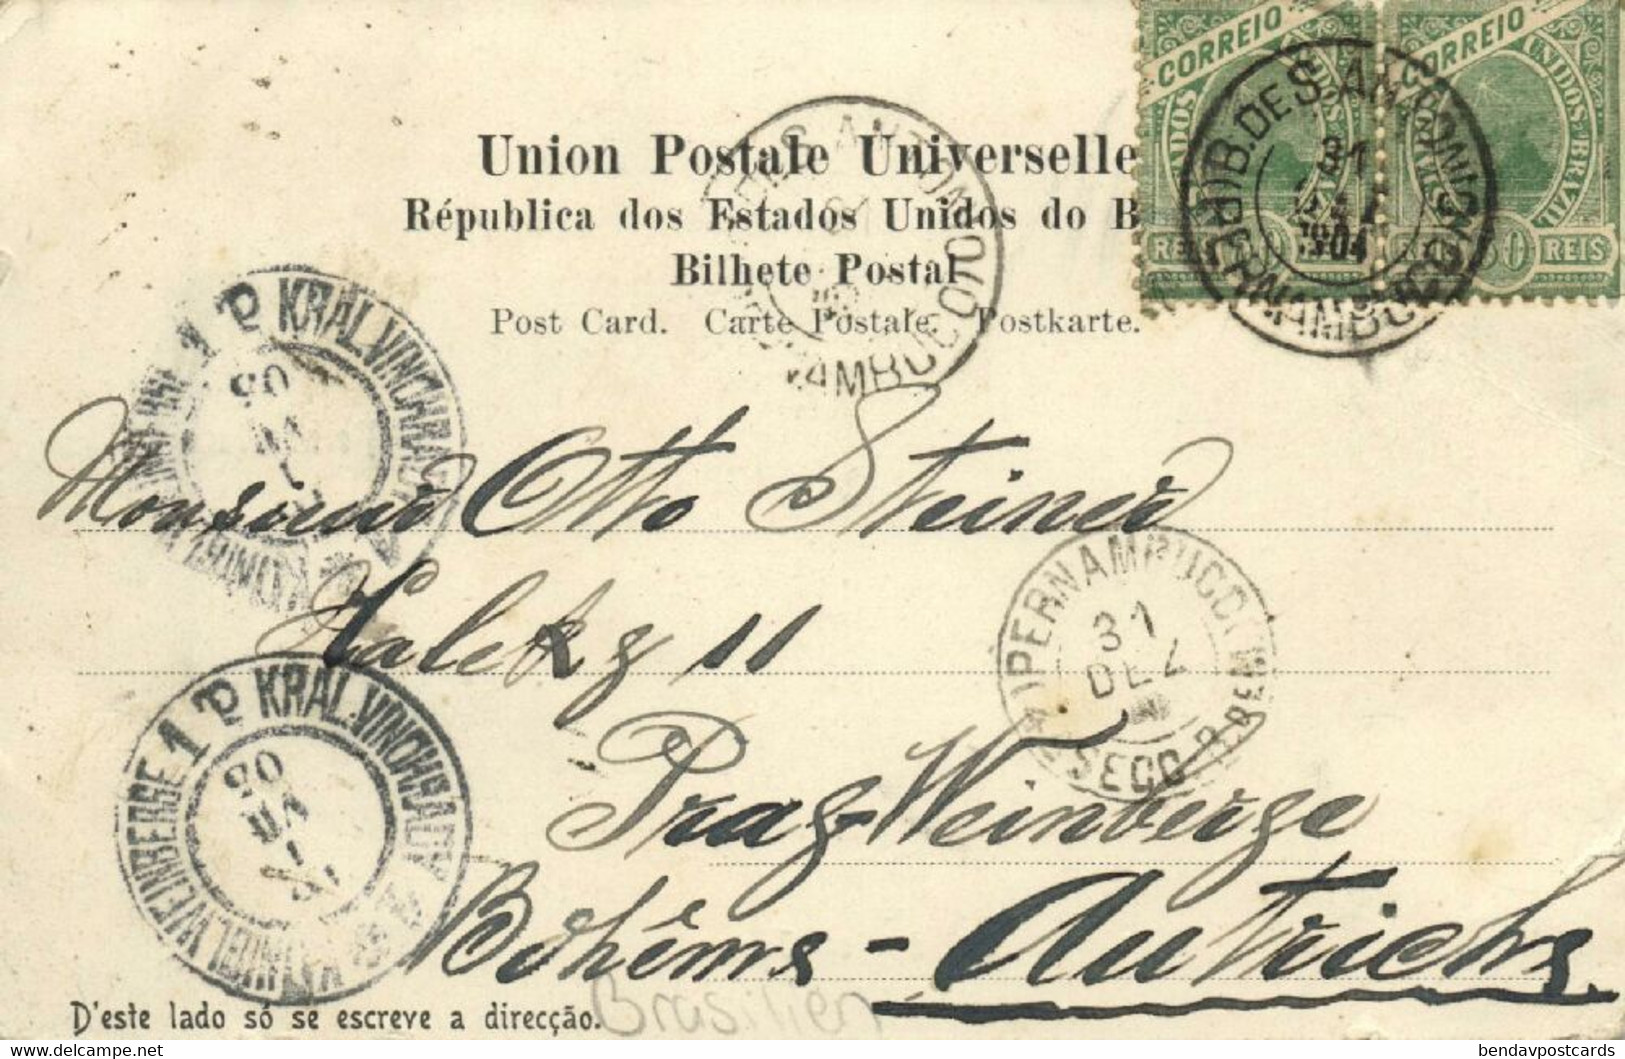 CORREIO CORREIO
UNIDOS BRAZIL
REIS 50 REIS
TRIB. DE S. ANTONIO
31
1904
PERNAMBUCO
Union Postale Universelle
Républica dos Estados Unidos do B
Bilhete Postal
Post Card. Carte Postale. Postkarte.
KRÁL. VINOHRADY
KÖNIGL. WEINBERGE 1
05
Monsieur Otto Steiner
Halekg 11
PERNAMBUCO
31
DEZ
SECC
KRÁL. VINOHRADY
KÖNIGL. WEINBERGE 1
05
Prag-Weinberge
Bohême - Autriche
D'este lado só se escreve a direcção.
Brasilien
bendavpostcards